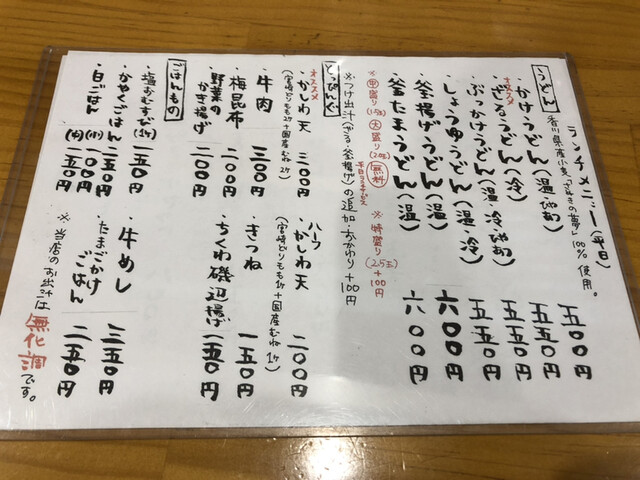 ランチメニュー(平日)
うどん
香川県産小麦「さぬきの夢」100%使用。
・かけうどん(温・ひやあつ) 五〇〇円
オススメ
・ざるうどん(冷) 五五〇円
・ぶっかけうどん(温・冷・ひやあつ) 五五〇円
・しょうゆうどん(温・冷) 五五〇円
・釜揚げうどん(温) 六〇〇円
・釜たまうどん(温) 六〇〇円
平日サービス
※中盛り(1.5玉)大盛り(2玉)無料 ※特盛り(2.5玉)+100円
※つけ出汁(ざる・釜揚げ)の追加・おかわり+100円
とっぴんぐ
オススメ
・かしわ天 三〇〇円
(宮崎とりもも1ケ+国産むね2ケ)
・牛肉 三〇〇円
・梅昆布 二〇〇円
・野菜のかき揚げ 二〇〇円
・ハーフかしわ天 二〇〇円
(宮崎とりもも1ケ+国産むね1ケ)
・きつね 一五〇円
・ちくわ磯辺揚げ 一五〇円
ごはんもの
・塩おむすび(1ケ) 一五〇円
・かやくごはん 二五〇円
・白ごはん (小) 一〇〇円
(中) 一五〇円
・牛めし 三五〇円
・たまごかけごはん 二五〇円
※当店のお出汁は無化調です。